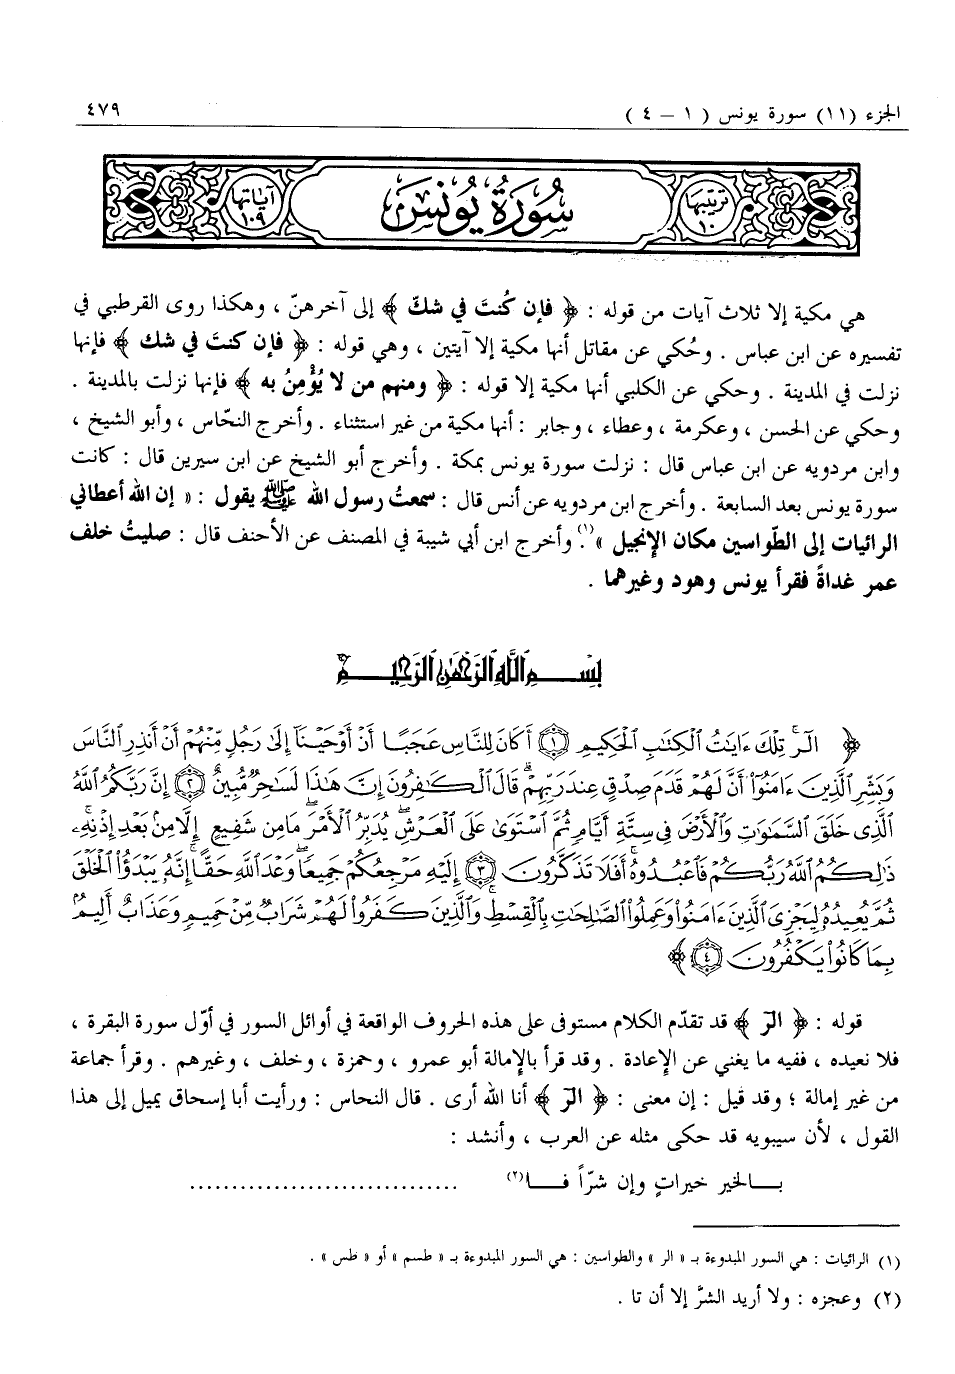 الجزء (١١) سورة يونس ( ١ – ٤ )
٤٧٩
ترتيبها ١٠
سُورَةُ يُونسَ
آياتها ١٠٩
هي مكية إلا ثلاث آيات من قوله : ﴿ فإن كُنتَ في شكّ ﴾ إلى آخرهنّ ، وهكذا روى القرطبي في
تفسيره عن ابن عباس . وحُكي عن مقاتل أنها مكية إلا آيتين ، وهي قوله : ﴿ فإن كنتَ في شك ﴾ فإنها
نزلت في المدينة . وحكي عن الكلبي أنها مكية إلا قوله : ﴿ ومنهم من لا يُؤْمِنُ به ﴾ فإنها نزلت بالمدينة .
وحكي عن الحسن ، وعكرمة ، وعطاء ، وجابر : أنها مكية من غير استثناء . وأخرج النحّاس ، وأبو الشيخ ،
وابن مردويه عن ابن عباس قال : نزلت سورة يونس بمكة . وأخرج أبو الشيخ عن ابن سيرين قال : كانت
سورة يونس بعد السابعة . وأخرج ابن مردويه عن أنس قال : سمعتُ رسول الله ﷺ يقول : « إن الله أعطاني
الرائيات إلى الطّواسين مكان الإنجيل »(١). وأخرج ابن أبي شيبة في المصنف عن الأحنف قال : صليتُ خلف
عمر غداةً فقرأ يونس وهود وغيرهما .
بِسْمِ اللَّهِ الرَّحْمَٰنِ الرَّحِيمِ
﴿ الٓرۚ تِلْكَ ءَايَٰتُ ٱلْكِتَٰبِ ٱلْحَكِيمِ ١ أَكَانَ لِلنَّاسِ عَجَبًا أَنْ أَوْحَيْنَآ إِلَىٰ رَجُلٍ مِّنْهُمْ أَنْ أَنذِرِ ٱلنَّاسَ
وَبَشِّرِ ٱلَّذِينَ ءَامَنُوٓا۟ أَنَّ لَهُمْ قَدَمَ صِدْقٍ عِندَ رَبِّهِمْۗ قَالَ ٱلْكَٰفِرُونَ إِنَّ هَٰذَا لَسَٰحِرٌ مُّبِينٌ ٢ إِنَّ رَبَّكُمُ ٱللَّهُ
ٱلَّذِى خَلَقَ ٱلسَّمَٰوَٰتِ وَٱلْأَرْضَ فِى سِتَّةِ أَيَّامٍ ثُمَّ ٱسْتَوَىٰ عَلَى ٱلْعَرْشِۖ يُدَبِّرُ ٱلْأَمْرَۖ مَا مِن شَفِيعٍ إِلَّا مِنۢ بَعْدِ إِذْنِهِۦۚ
ذَٰلِكُمُ ٱللَّهُ رَبُّكُمْ فَٱعْبُدُوهُۚ أَفَلَا تَذَكَّرُونَ ٣ إِلَيْهِ مَرْجِعُكُمْ جَمِيعًاۖ وَعْدَ ٱللَّهِ حَقًّاۚ إِنَّهُۥ يَبْدَؤُا۟ ٱلْخَلْقَ
ثُمَّ يُعِيدُهُۥ لِيَجْزِىَ ٱلَّذِينَ ءَامَنُوا۟ وَعَمِلُوا۟ ٱلصَّٰلِحَٰتِ بِٱلْقِسْطِۚ وَٱلَّذِينَ كَفَرُوا۟ لَهُمْ شَرَابٌ مِّنْ حَمِيمٍ وَعَذَابٌ أَلِيمٌۢ
بِمَا كَانُوا۟ يَكْفُرُونَ ٤ ﴾
قوله : ﴿ الٓر ﴾ قد تقدّم الكلام مستوفى على هذه الحروف الواقعة في أوائل السور في أوّل سورة البقرة ،
فلا نعيده ، ففيه ما يغني عن الإعادة . وقد قرأ بالإمالة أبو عمرو ، وحمزة ، وخلف ، وغيرهم . وقرأ جماعة
من غير إمالة ؛ وقد قيل : إن معنى : ﴿ الٓر ﴾ أنا الله أرى . قال النحاس : ورأيت أبا إسحاق يميل إلى هذا
القول ، لأن سيبويه قد حكى مثله عن العرب ، وأنشد :
بـــالخير خيراتٍ وإن شرّاً فـــا(٢) ................................
(١) الرائيات : هي السور المبدوءة بـ « الر » والطواسين : هي السور المبدوءة بـ « طسم » أو « طس » .
(٢) وعجزه : ولا أريد الشرَّ إلا أن تا .